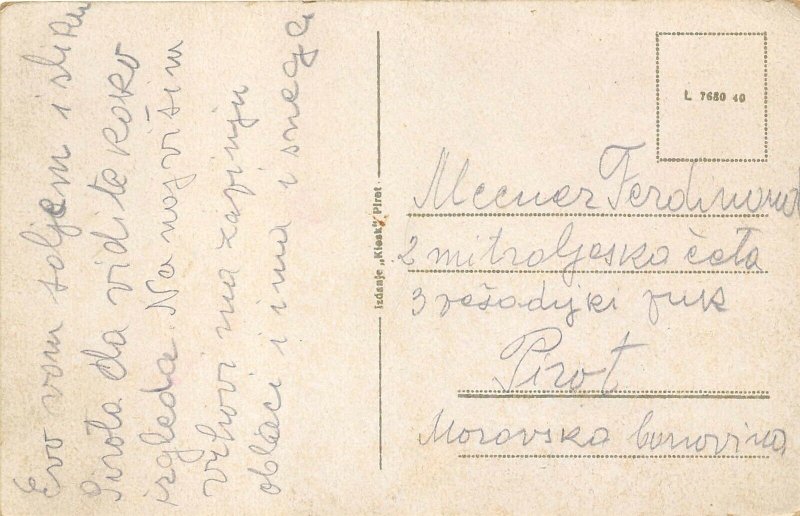 Evo vam šaljem i sliku
Pirota da vidite kako
izgleda. Na najvišim
vrhovi ma zapinju
oblaci i ima i snega
Izdanje „Kiosk" Pirot
L. 7680 40
Mecner Ferdinand
2 mitraljeska četa
3 pešadijski puk
Pirot
Moravska banovina